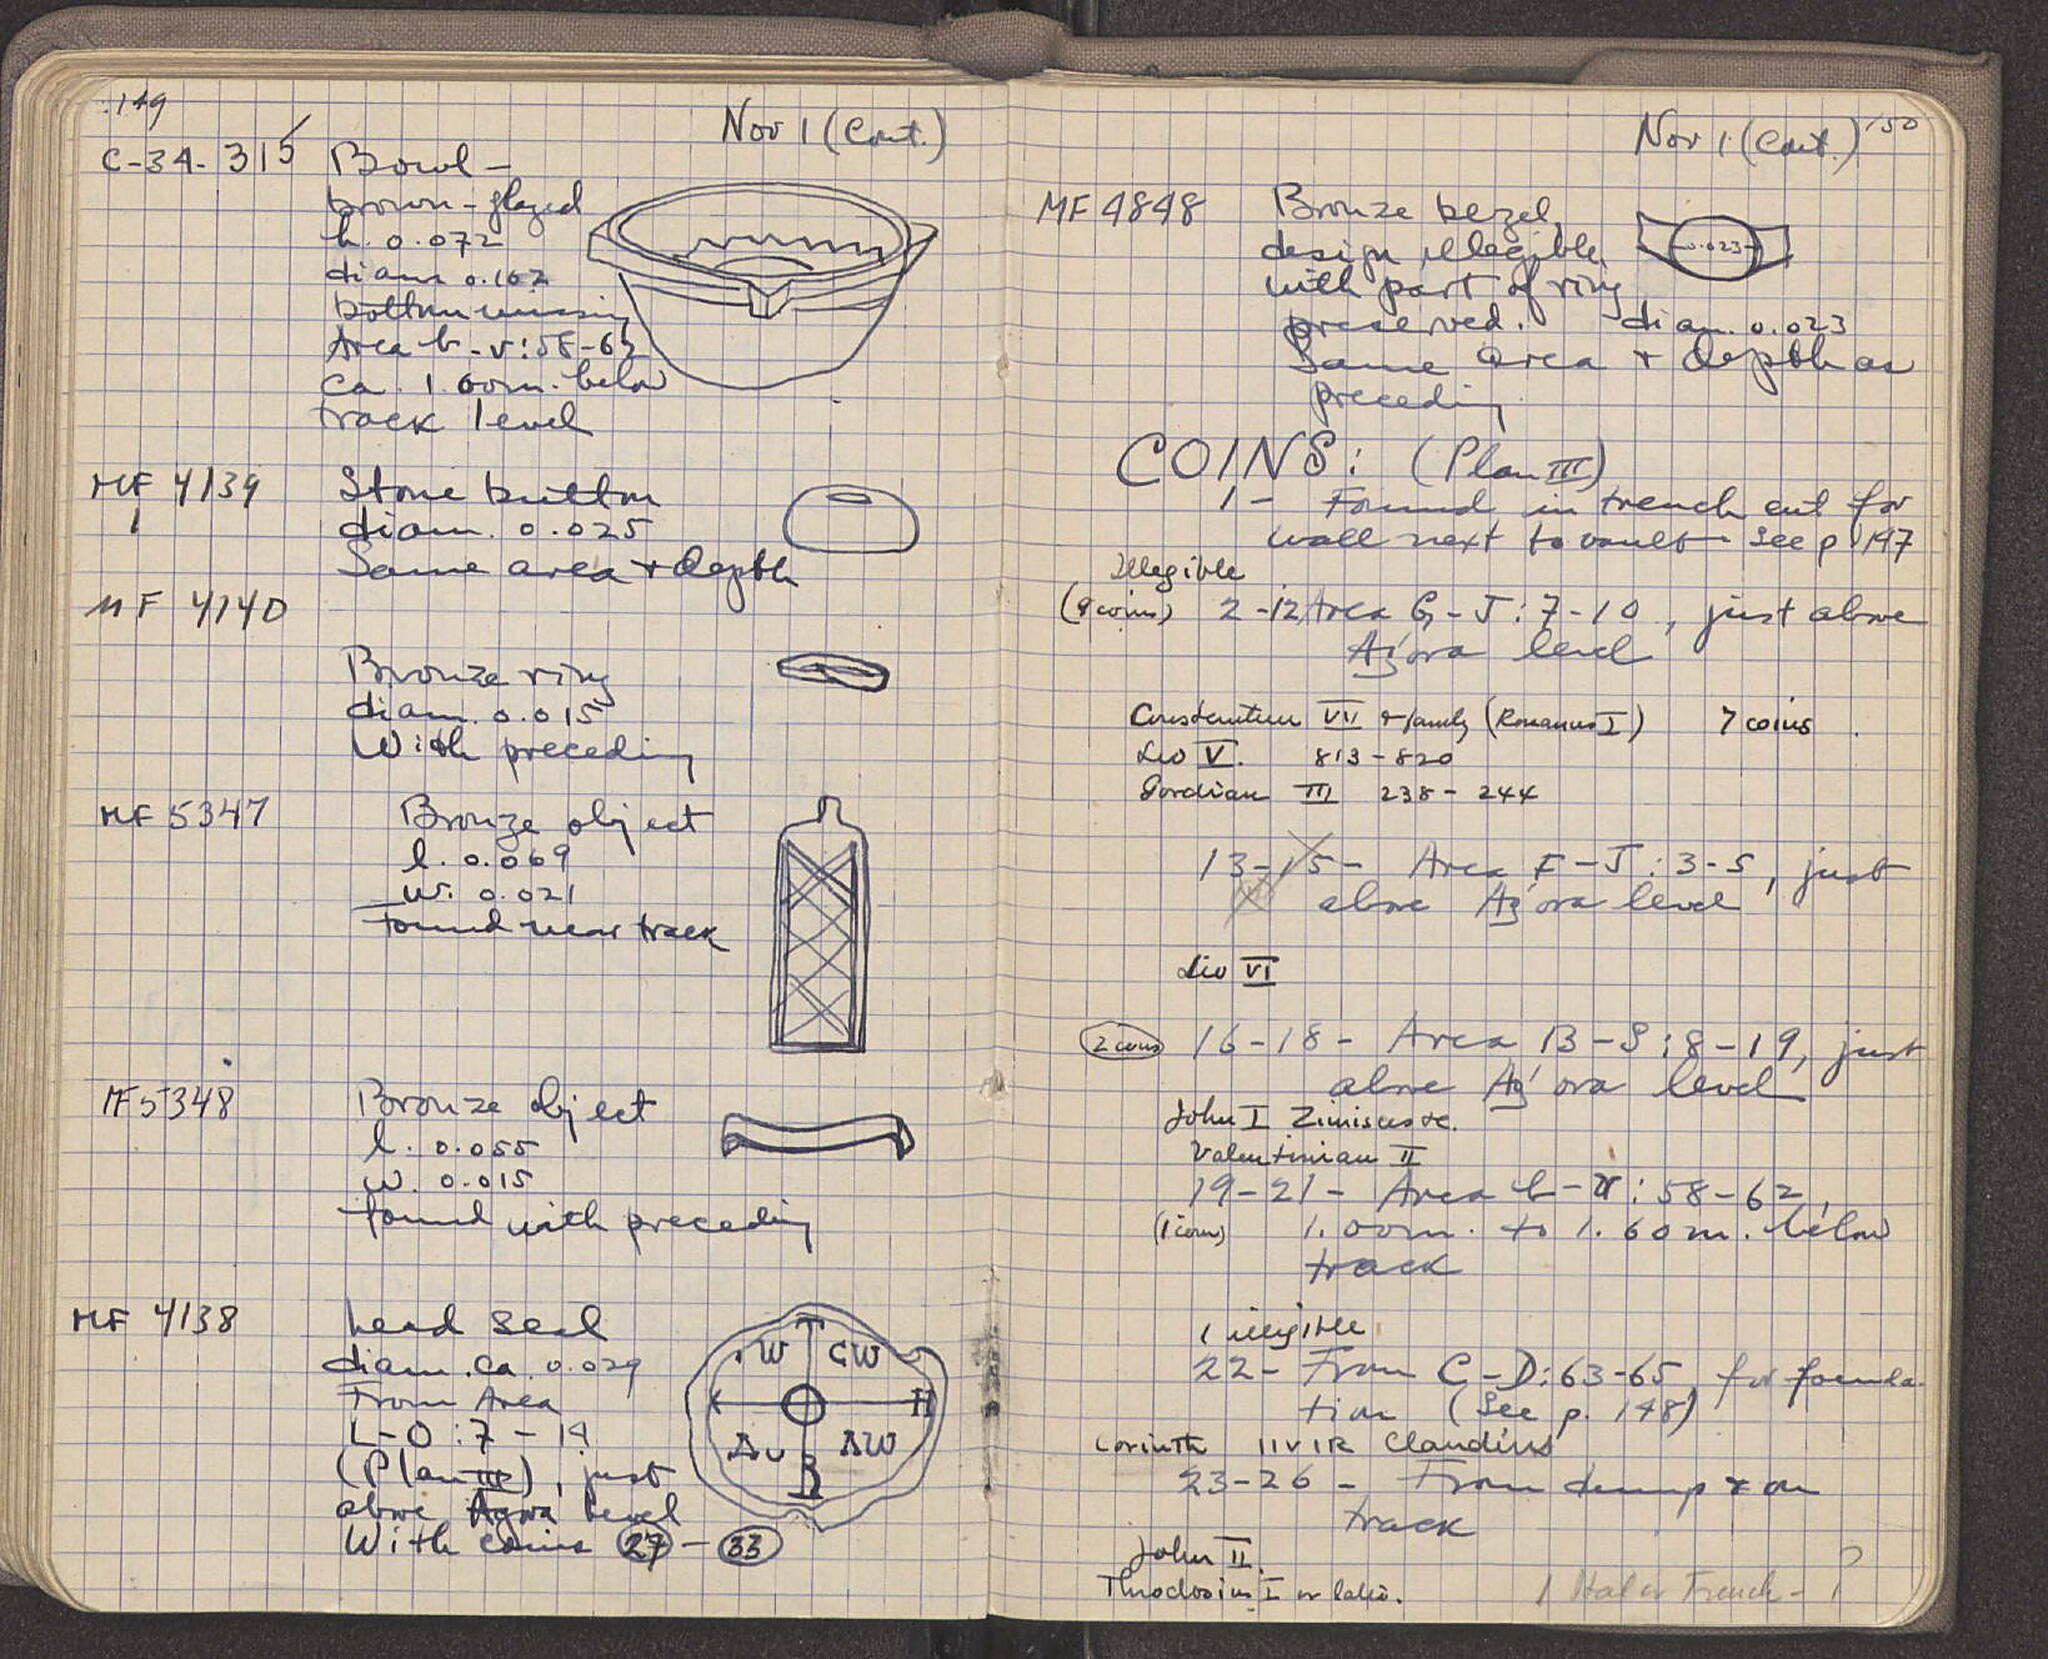 149
Nov 1 (Cont.)
C-34-315 Bowl -
brown-glazed
h. 0.072
diam 0.162
bottom missing
Area b-v:58-62
ca. 1.60m. below
track level
MF 4139 Stone button
diam. 0.025
Same area + depth
MF 4140
Bronze ring
diam. 0.015
With preceding
MF 5347 Bronze object
l. 0.069
w. 0.021
found near track
MF 5348 Bronze object
l. 0.055
w. 0.015
found with preceding
MF 4138 Lead seal
diam. ca. 0.029
From Area
L-O:7-14
(Plan III), just
above Agora level
With coins 27-33
Nov 1 (Cont.) 150
MF 4848 Bronze bezel,
design illegible
with part of ring
preserved. diam. 0.023
Same area + depth as
preceding
0.023
COINS: (Plan III)
1- Found in trench cut for
wall next to vault. See p 147
Illegible
(9 coins) 2-12 Area G-J:7-10, just above
Agora level
Constantine VII + family (Romanus I) 7 coins
Leo V. 813-820
Gordian III 238-244
13-15- Area F-J:3-5, just
above Agora level
Leo VI
2 coins 16-18- Area B-S:8-19, just
above Agora level
John I Zimisces etc.
Valentinian II
19-21- Area b-v:58-62,
(1 coin) 1.00m. to 1.60m. below
track
1 illegible
22- From C-D:63-65, for founda-
tion (See p. 148)
Corinth IIVIR Claudius
23-26- From dump & on
track
John II.
Theodosius I or later. 1 Ital or French - ?